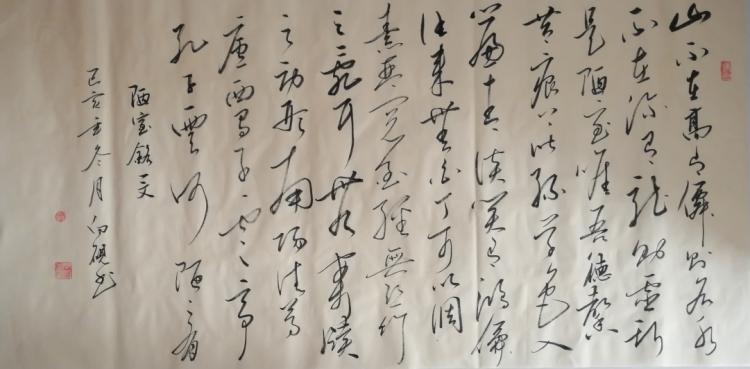 山不在高有僊則名水
不在深有龍則靈斯
是陋室唯吾德馨
苔痕上階綠草色入
簾青談笑有鴻儒
往來無白丁可以調
素琴閱金經無絲竹
之亂耳無案牘
之勞形南陽諸葛
廬西蜀子雲亭
孔子雲何陋之有
陋室銘一文
己亥冬月向硯书